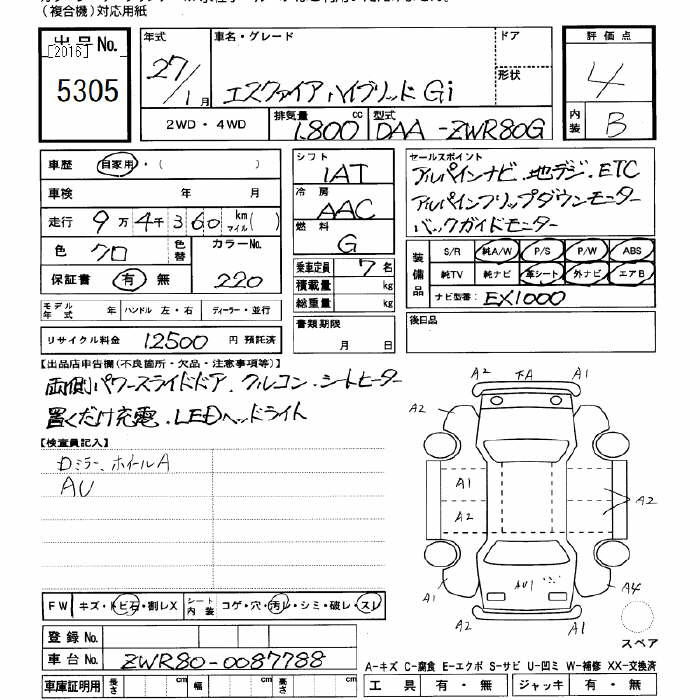 (複合機)対応用紙
出品No.
[2016]
5305
年式
27/1月
車名・グレード
エスクァイア ハイブリッド Gi
ドア
形状
評価点
4
内装
B
2WD・4WD
排気量
1,800 cc
型式
DAA-ZWR80G
車歴 自家用・( )
車検 年 月
走行 9万4千360km マイル( )
色 クロ 色替 カラーNo.
保証書 有 無 220
モデル年式 年 ハンドル 左・右 ディーラー・並行
リサイクル料金 12500 円 預託済
シフト
IAT
冷房
AAC
燃料
G
乗車定員 7名
積載量 kg
総重量 kg
書類期限
月 日
セールスポイント
アルパインナビ.地デジ.ETC
アルパインフリップダウンモニター
バックガイドモニター
装備品
S/R 純A/W P/S P/W ABS
純TV 純ナビ 革シート 外ナビ エアB
ナビ型番: EX1000
後日品
【出品店申告欄(不良箇所・欠品・注意事項等)】
両側パワースライドドア.クルコン.シートヒーター
置くだけ充電.LEDヘッドライト
【検査員記入】
Dミラー、ホイールA
AU
A2 A1
A2 A2
A1
A2 A2
AU1
A1 A4
A2 A1
スペア
FW キズ・トビ石・割レX シート内装 コゲ・穴・汚レ・シミ・破レ・スレ
登録No.
車台No. ZWR80-0087788
車庫証明用 長さ cm 幅 cm 高さ cm
A-キズ C-腐食 E-エクボ S-サビ U-凹ミ W-補修 XX-交換済
工具 有・無 ジャッキ 有・無